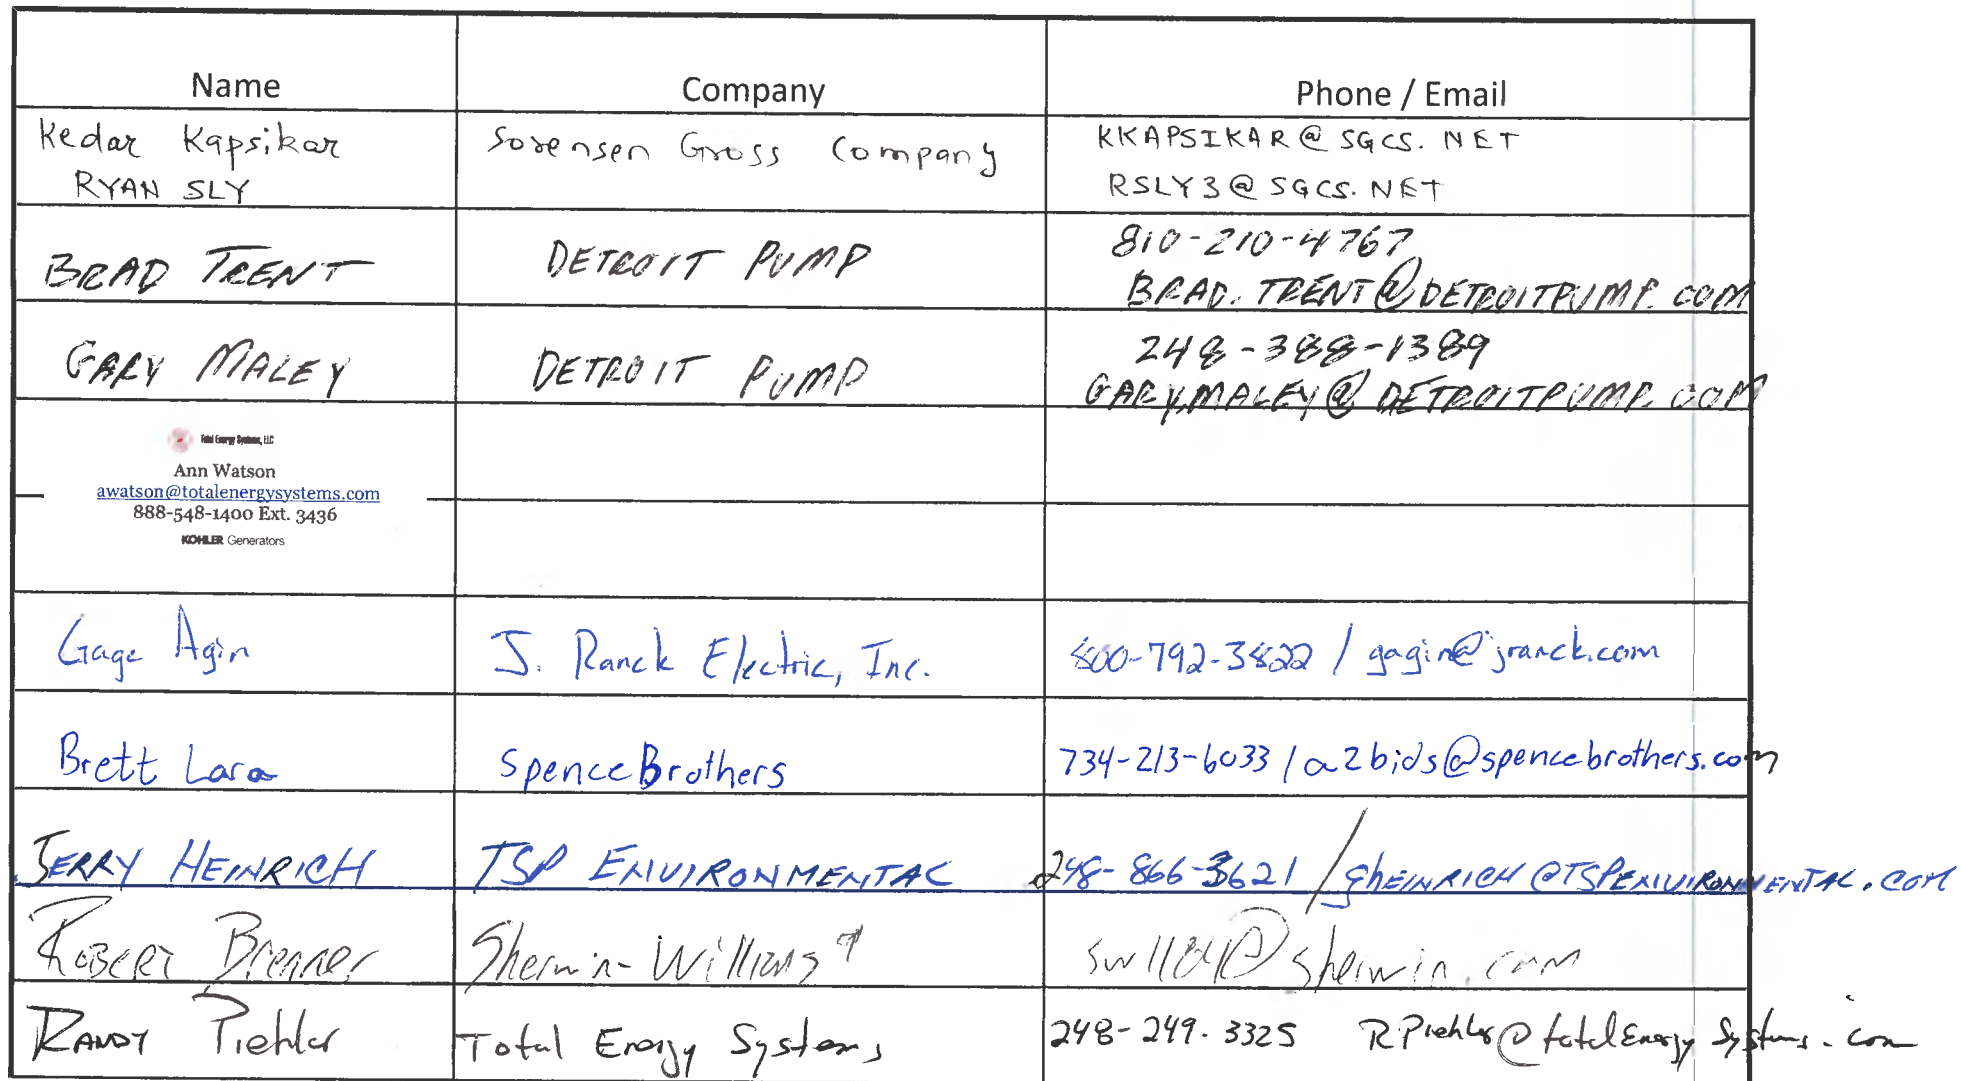 Name Company Phone / Email
Kedar Kapsikar Sorensen Gross Company KKAPSIKAR@SGCS.NET
RYAN SLY RSLY3@SGCS.NET
BRAD TRENT DETROIT PUMP 810-210-4767
BRAD.TRENT@DETROITPUMP.COM
GARY MALEY DETROIT PUMP 248-388-1389
GARY.MALEY@DETROITPUMP.COM
Total Energy Systems, LLC
Ann Watson
awatson@totalenergysystems.com
888-548-1400 Ext. 3436
KOHLER Generators
Gage Agin J. Ranck Electric, Inc. 800-792-3822 / gagin@jranck.com
Brett Lara Spence Brothers 734-213-6033 / a2bids@spencebrothers.com
JERRY HEINRICH TSP ENVIRONMENTAL 248-866-3621 / gHEINRICH@TSPENVIRONMENTAL.COM
ROBERT Brenner Sherwin-Williams
RANDY Piehler Total Energy Systems 248-249.3325 RPiehler@totalEnergySystems.com